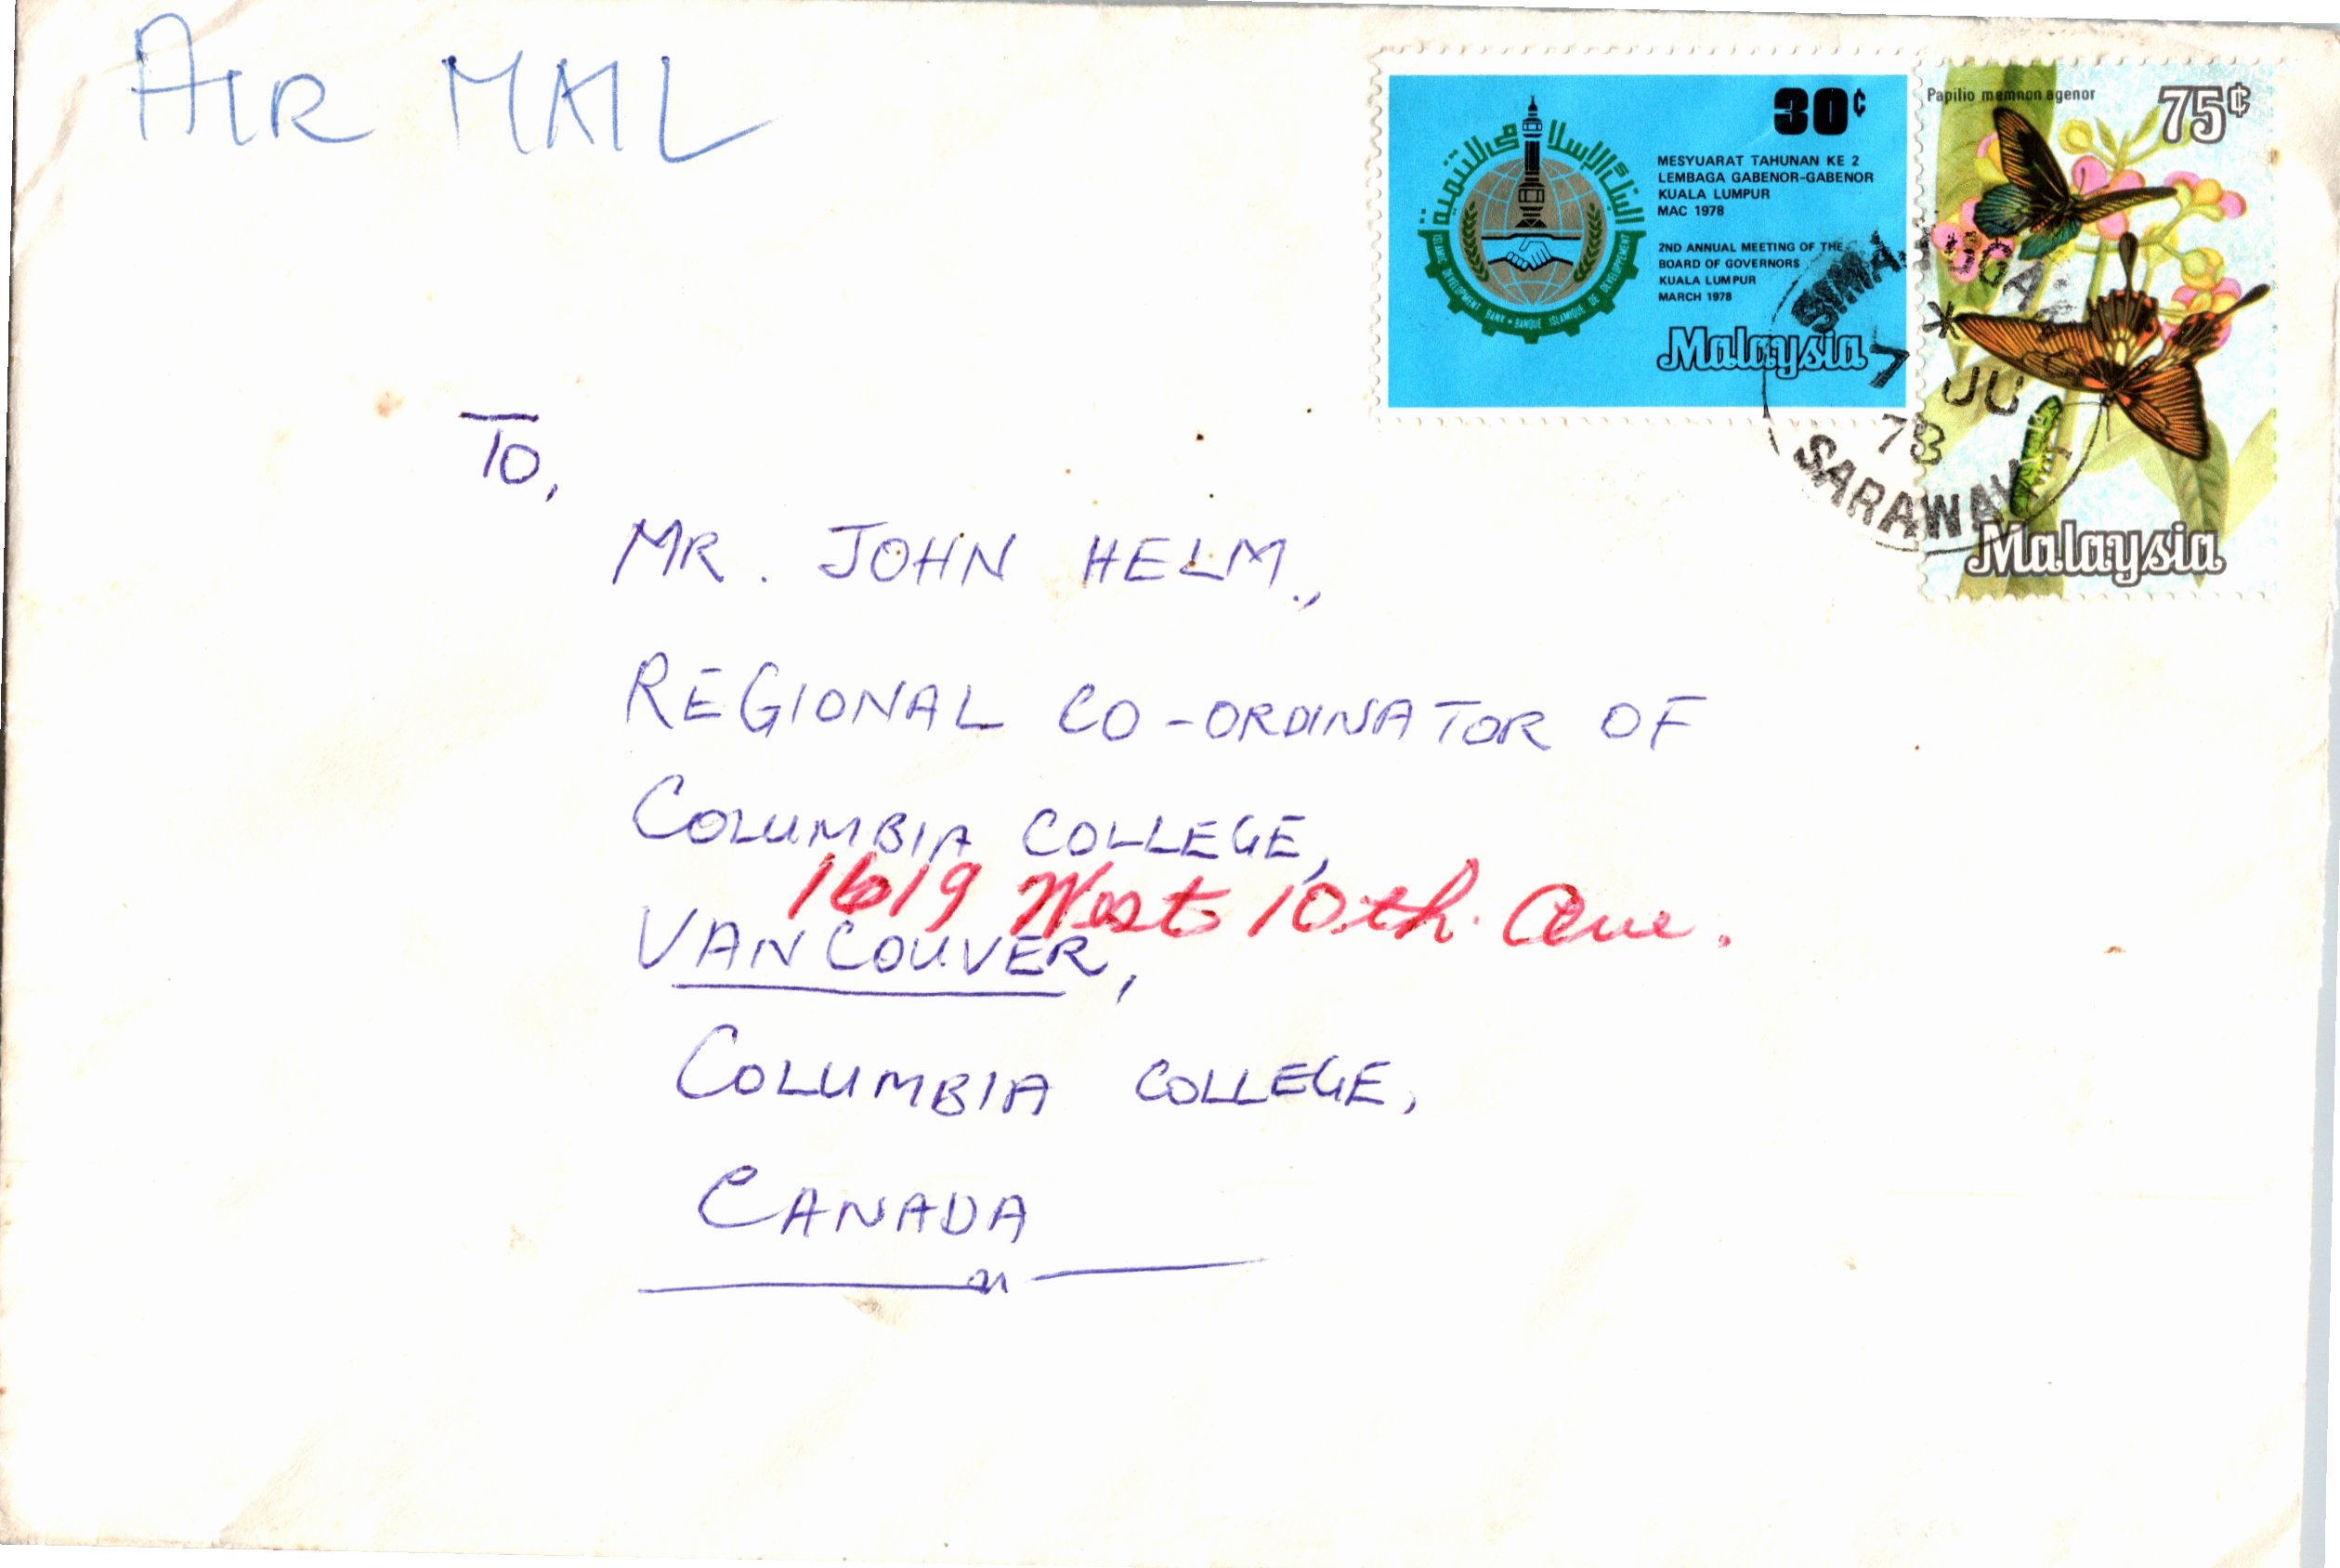 AIR MAIL
30¢
MESYUARAT TAHUNAN KE 2
LEMBAGA GABENOR-GABENOR
KUALA LUMPUR
MAC 1978
2ND ANNUAL MEETING OF THE
BOARD OF GOVERNORS
KUALA LUMPUR
MARCH 1978
Malaysia
البنك الإسلامي للتنمية
ISLAMIC DEVELOPMENT BANK • BANQUE ISLAMIQUE DE DEVELOPPEMENT
Papilio memnon agenor
75¢
Malaysia
SIMANGGANG
7 JU
78
SARAWAK
To,
MR. JOHN HELM.,
REGIONAL CO-ORDINATOR OF
COLUMBIA COLLEGE,
1619 West 10th. Ave.
VANCOUVER,
COLUMBIA COLLEGE,
CANADA